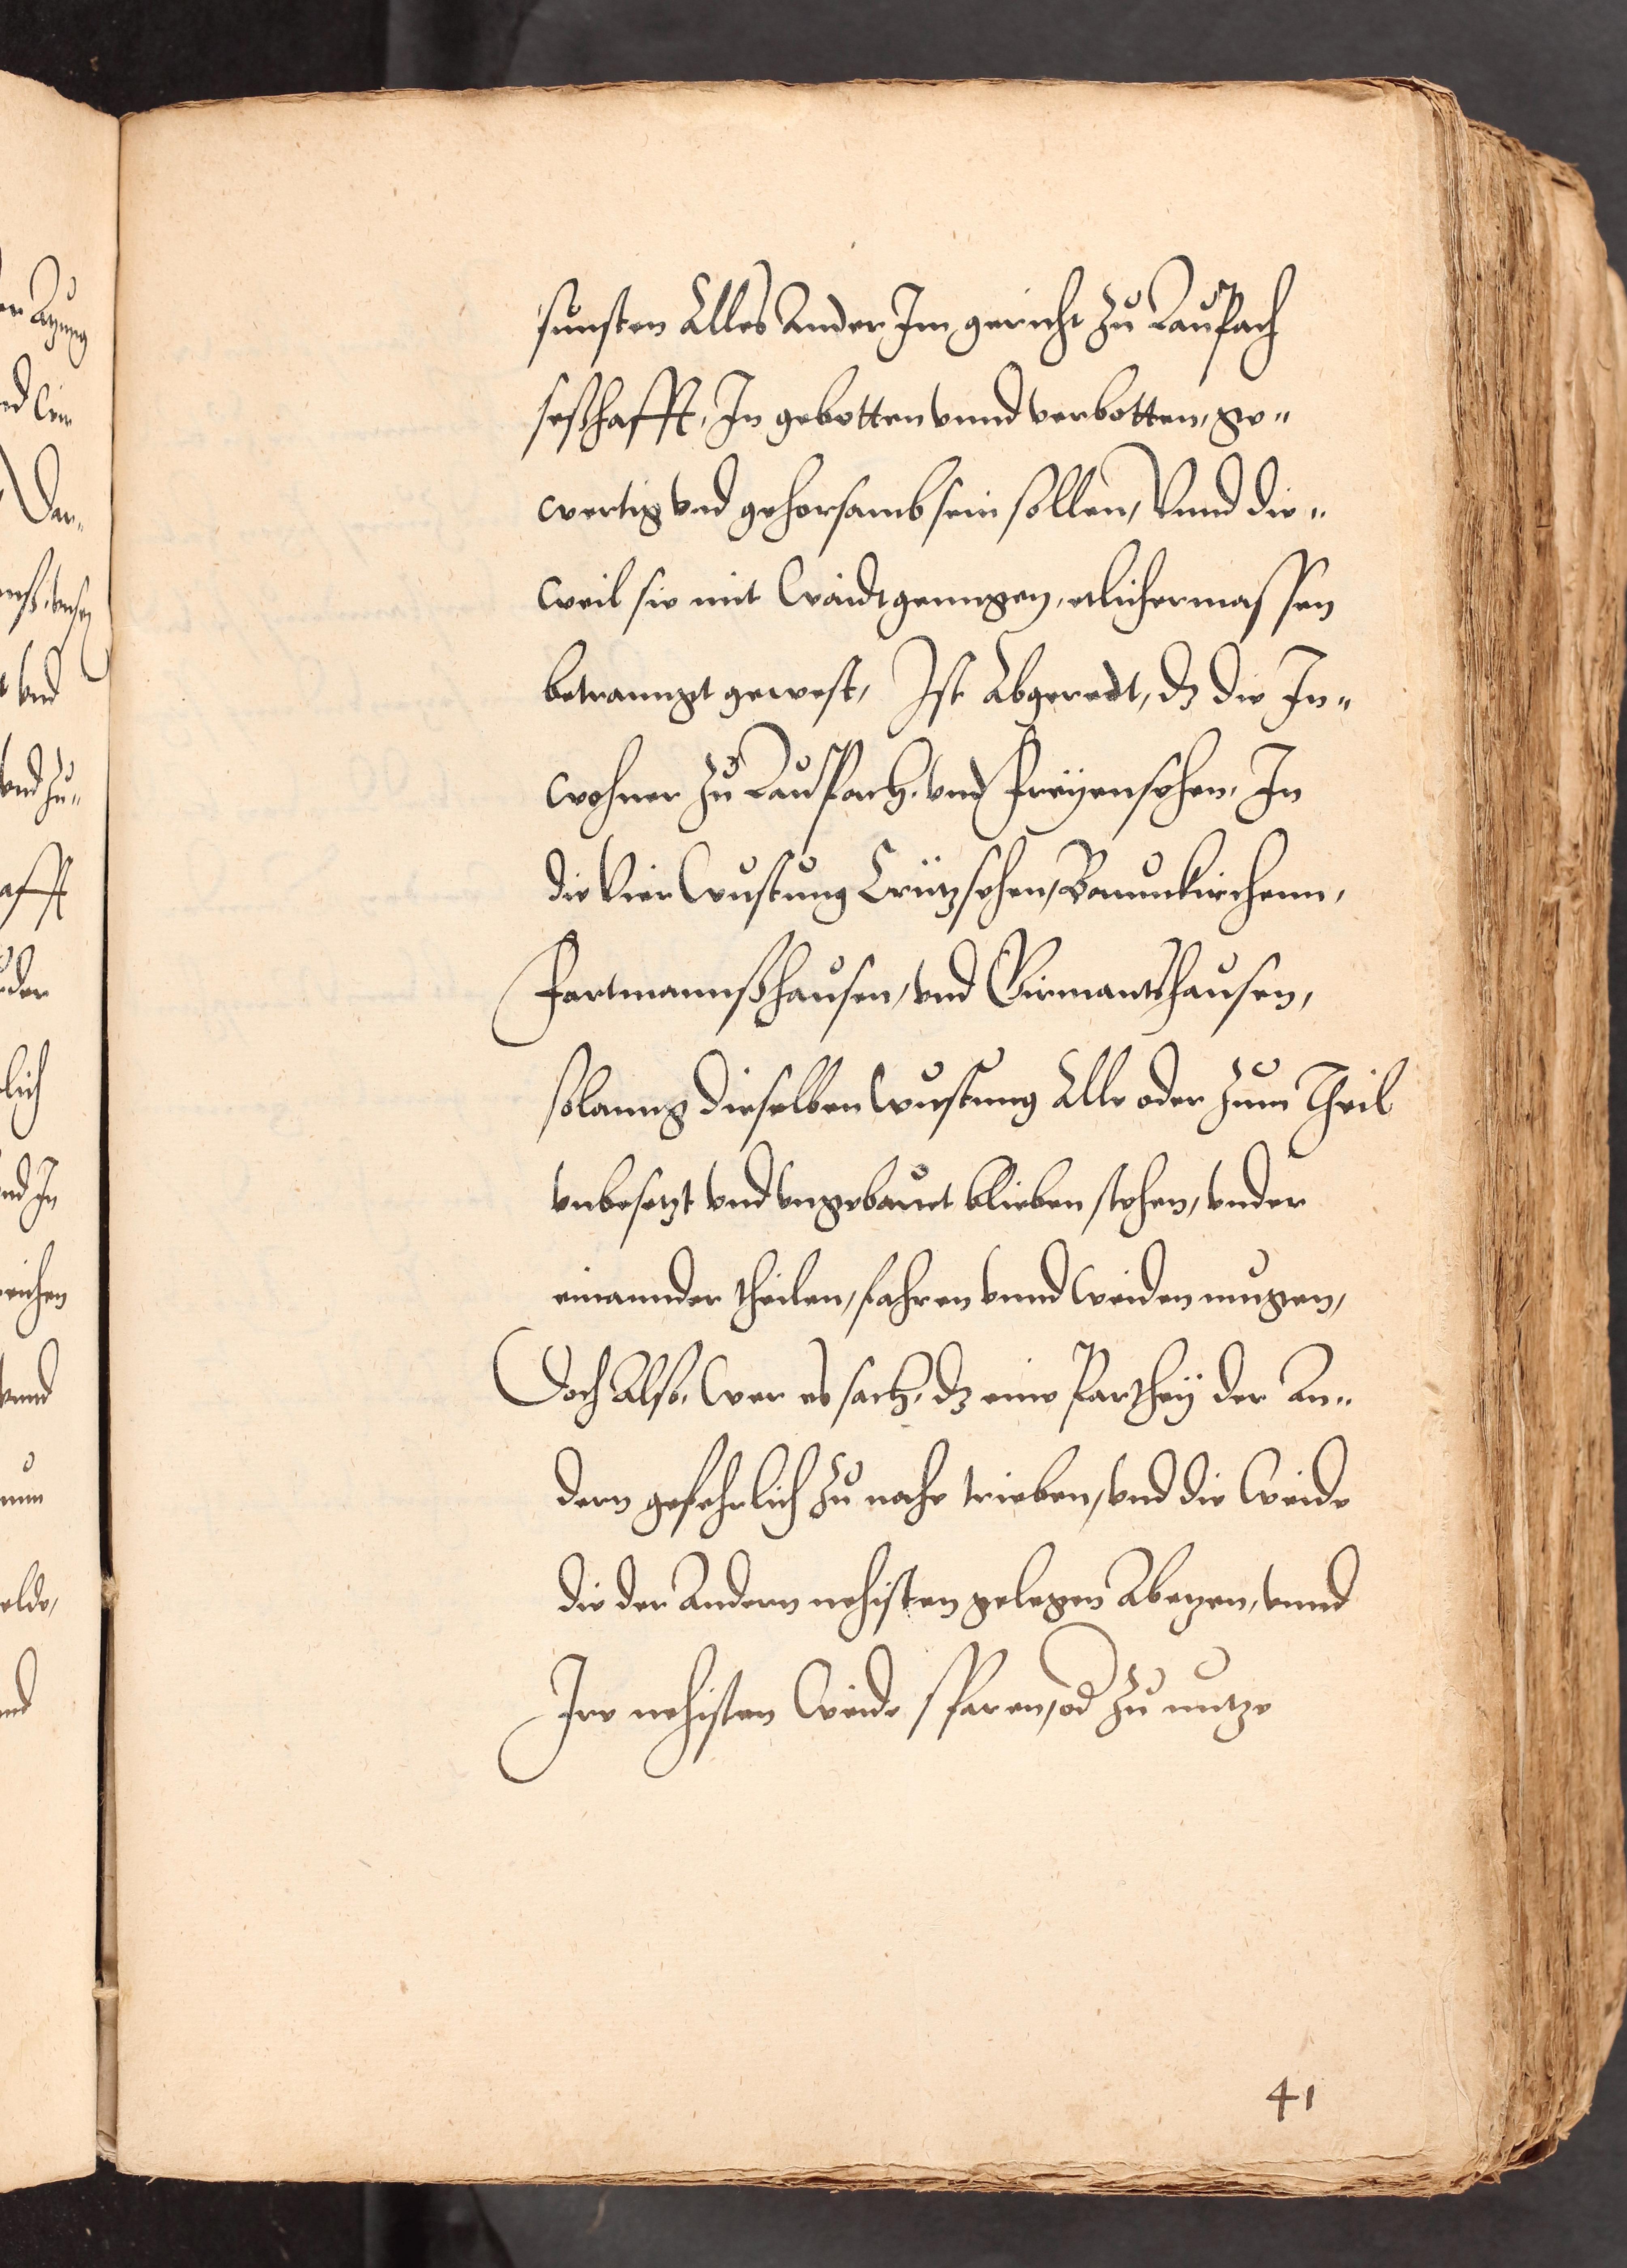 sunsten Alles Ander Im gericht zu Laupach
seßhafft, In gebotten vnnd verbotten, ge„
wertig vnd gehorsamb sein sollen, Vnnd die„
weil sie mit Waidtgenngen, etlichermassen
betranngt gewest, Ist Abgeredt, dz die In„
wohner zu Laupach, vnd Freyensehen, In
die Vier Wustung Crützsehen, Baumkirchenn,
Hartmannßhausen, vnd Girmantshausen,
solanng dieselben Wustung Alle oder zum Theil
vnbesetzt vnd vngebauet blieben stehen, vnder
einannder theilen, fahren vnnd Weiden mugen,
Doch Also, Wer es sach, dz eine Parthey der An„
dern gefehrlich zu nahe trieben, vnd die Weide
die der Andern nehisten gelegen Abetzen, vnnd
Ire nehisten Weide sparen, od zu nutze
41
er Atzung
vnd
vnd Zu„
afft
lich
nd In
eichen
vnnd
elde,
nd